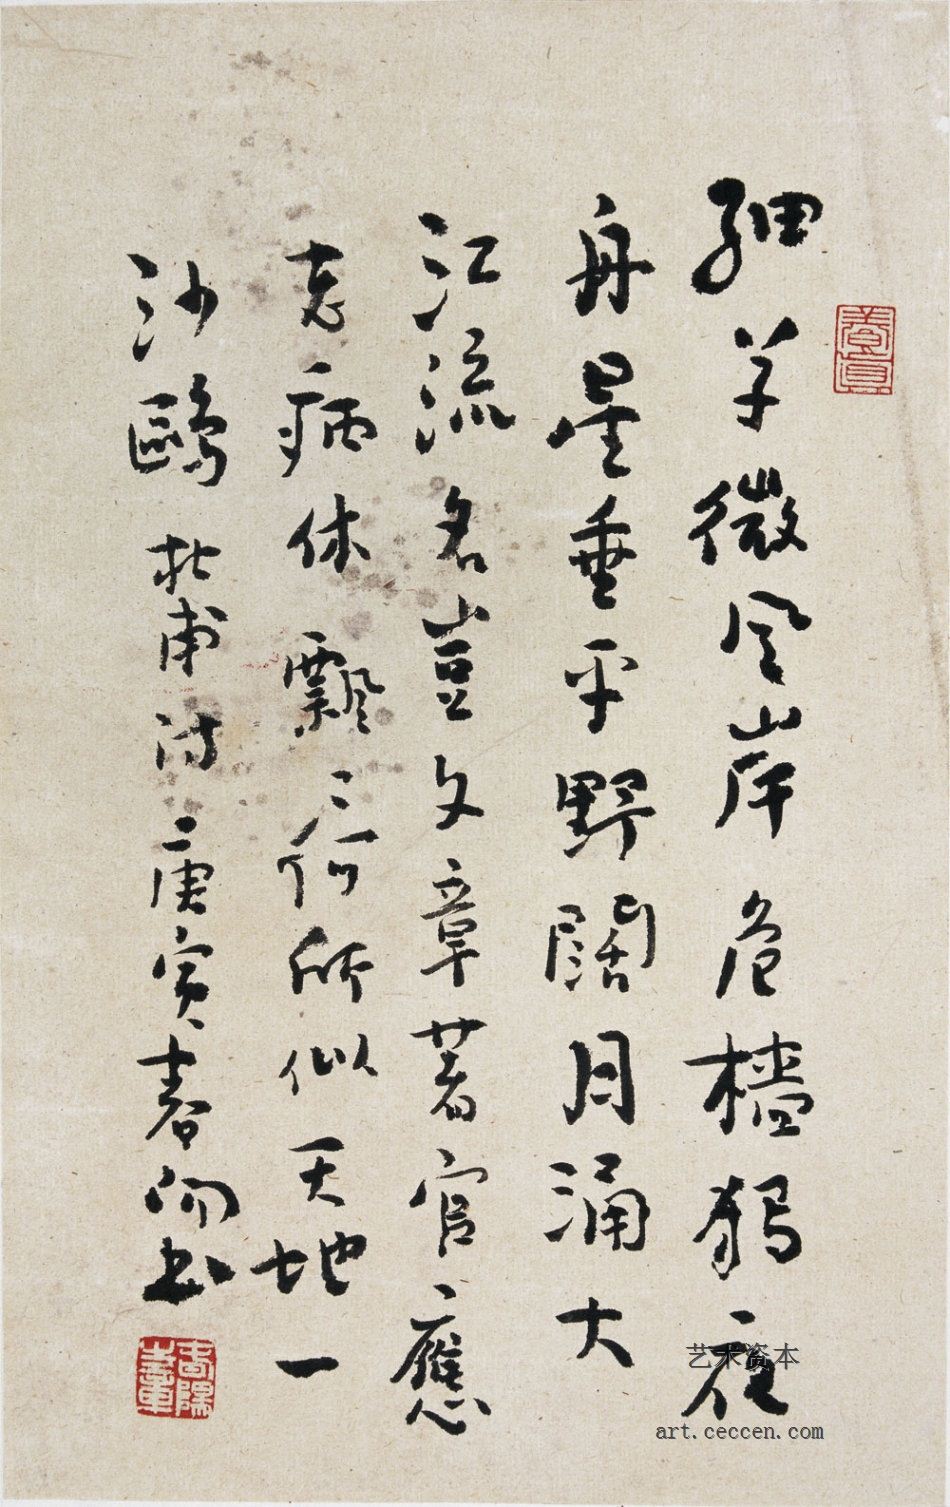 細草微風岸危檣獨夜
舟星垂平野闊月涌大
江流名豈文章著官應
老病休飄〻何所似天地一
沙鷗 杜甫詩 庚寅春 書
養真
艺术资本
art.ceccen.com